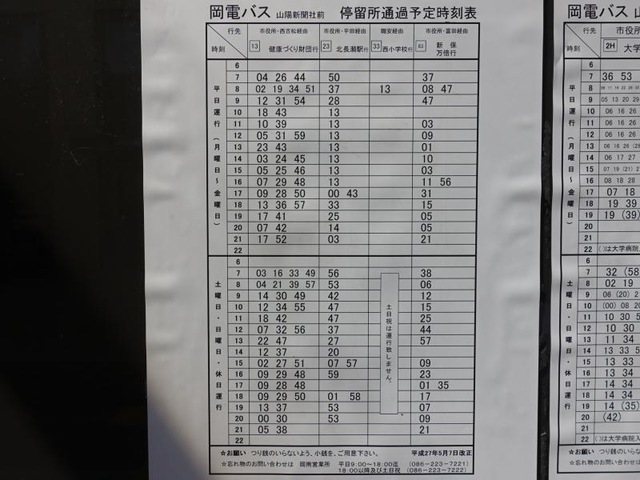 岡電バス 山陽新聞社前 停留所通過予定時刻表
行先 時刻
市役所・西古松経由 13 健康づくり財団行
市役所・平田経由 23 北長瀬駅行
職安経由 33 西小学校行
市役所・富田経由 新保万倍行
平日運行(月曜日~金曜日)
6
7 04 26 44 50 37
8 02 19 34 51 37 13 08 47
9 12 31 54 28 47
10 18 43 13
11 10 39 13 03
12 05 31 59 13 09
13 23 43 13 01
14 03 24 45 13 10
15 05 25 46 13 03
16 07 29 48 13 11 56
17 09 28 50 00 43 31
18 13 36 57 33 15
19 17 41 25 05
20 07 42 14 05
21 17 52 03 21
22
土曜日・日曜日・休日運行
土日祝は運行致しません。
6
7 03 16 33 49 56 38
8 04 21 39 57 53 06
9 14 30 49 42 12
10 12 34 55 47 15
11 18 42 47 25
12 07 32 56 37 44
13 22 47 27 57
14 12 37 20
15 02 27 51 07 57 09
16 09 29 48 59 23
17 09 28 48 01 35
18 09 29 50 01 58 17
19 13 37 53 07
20 00 30 53 09
21 05 38 21
22
☆お願い つり銭のいらないよう、小銭を、ご用意下さい。 平成27年5月7日改正
☆忘れ物のお問い合わせは 岡南営業所 平日9:00~18:00迄 (086-223-7221)
18:00以降及び土日祝 (086-223-7222)
岡電バス
行先 時刻
市役所
2H 大学
7 36 53
17 07 18
18 19 39
19 19 (39)
20
21
22 ( )は大学病院
6
7 32 (58)
8 02 19
9 06 (20)
10 (00) 08 20
11 10 30
12 10 30
13 11 34
14 13 33
15 13 34
16 14 34
17 14 34
18 14 34
19 14 (35)
20 (42)
21
22 ( )は大学病院入
☆お願い つり銭のいらな
☆忘れ物のお問い合わ